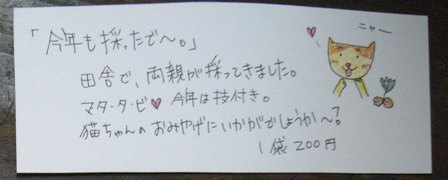 「今年も採ったで〜。」
ニャー
田舎で、両親が採ってきました。
マタ・タ・ビ♥ 今年は技付き。
猫ちゃんのおみやげにいかがでしょうか〜?
1袋200円